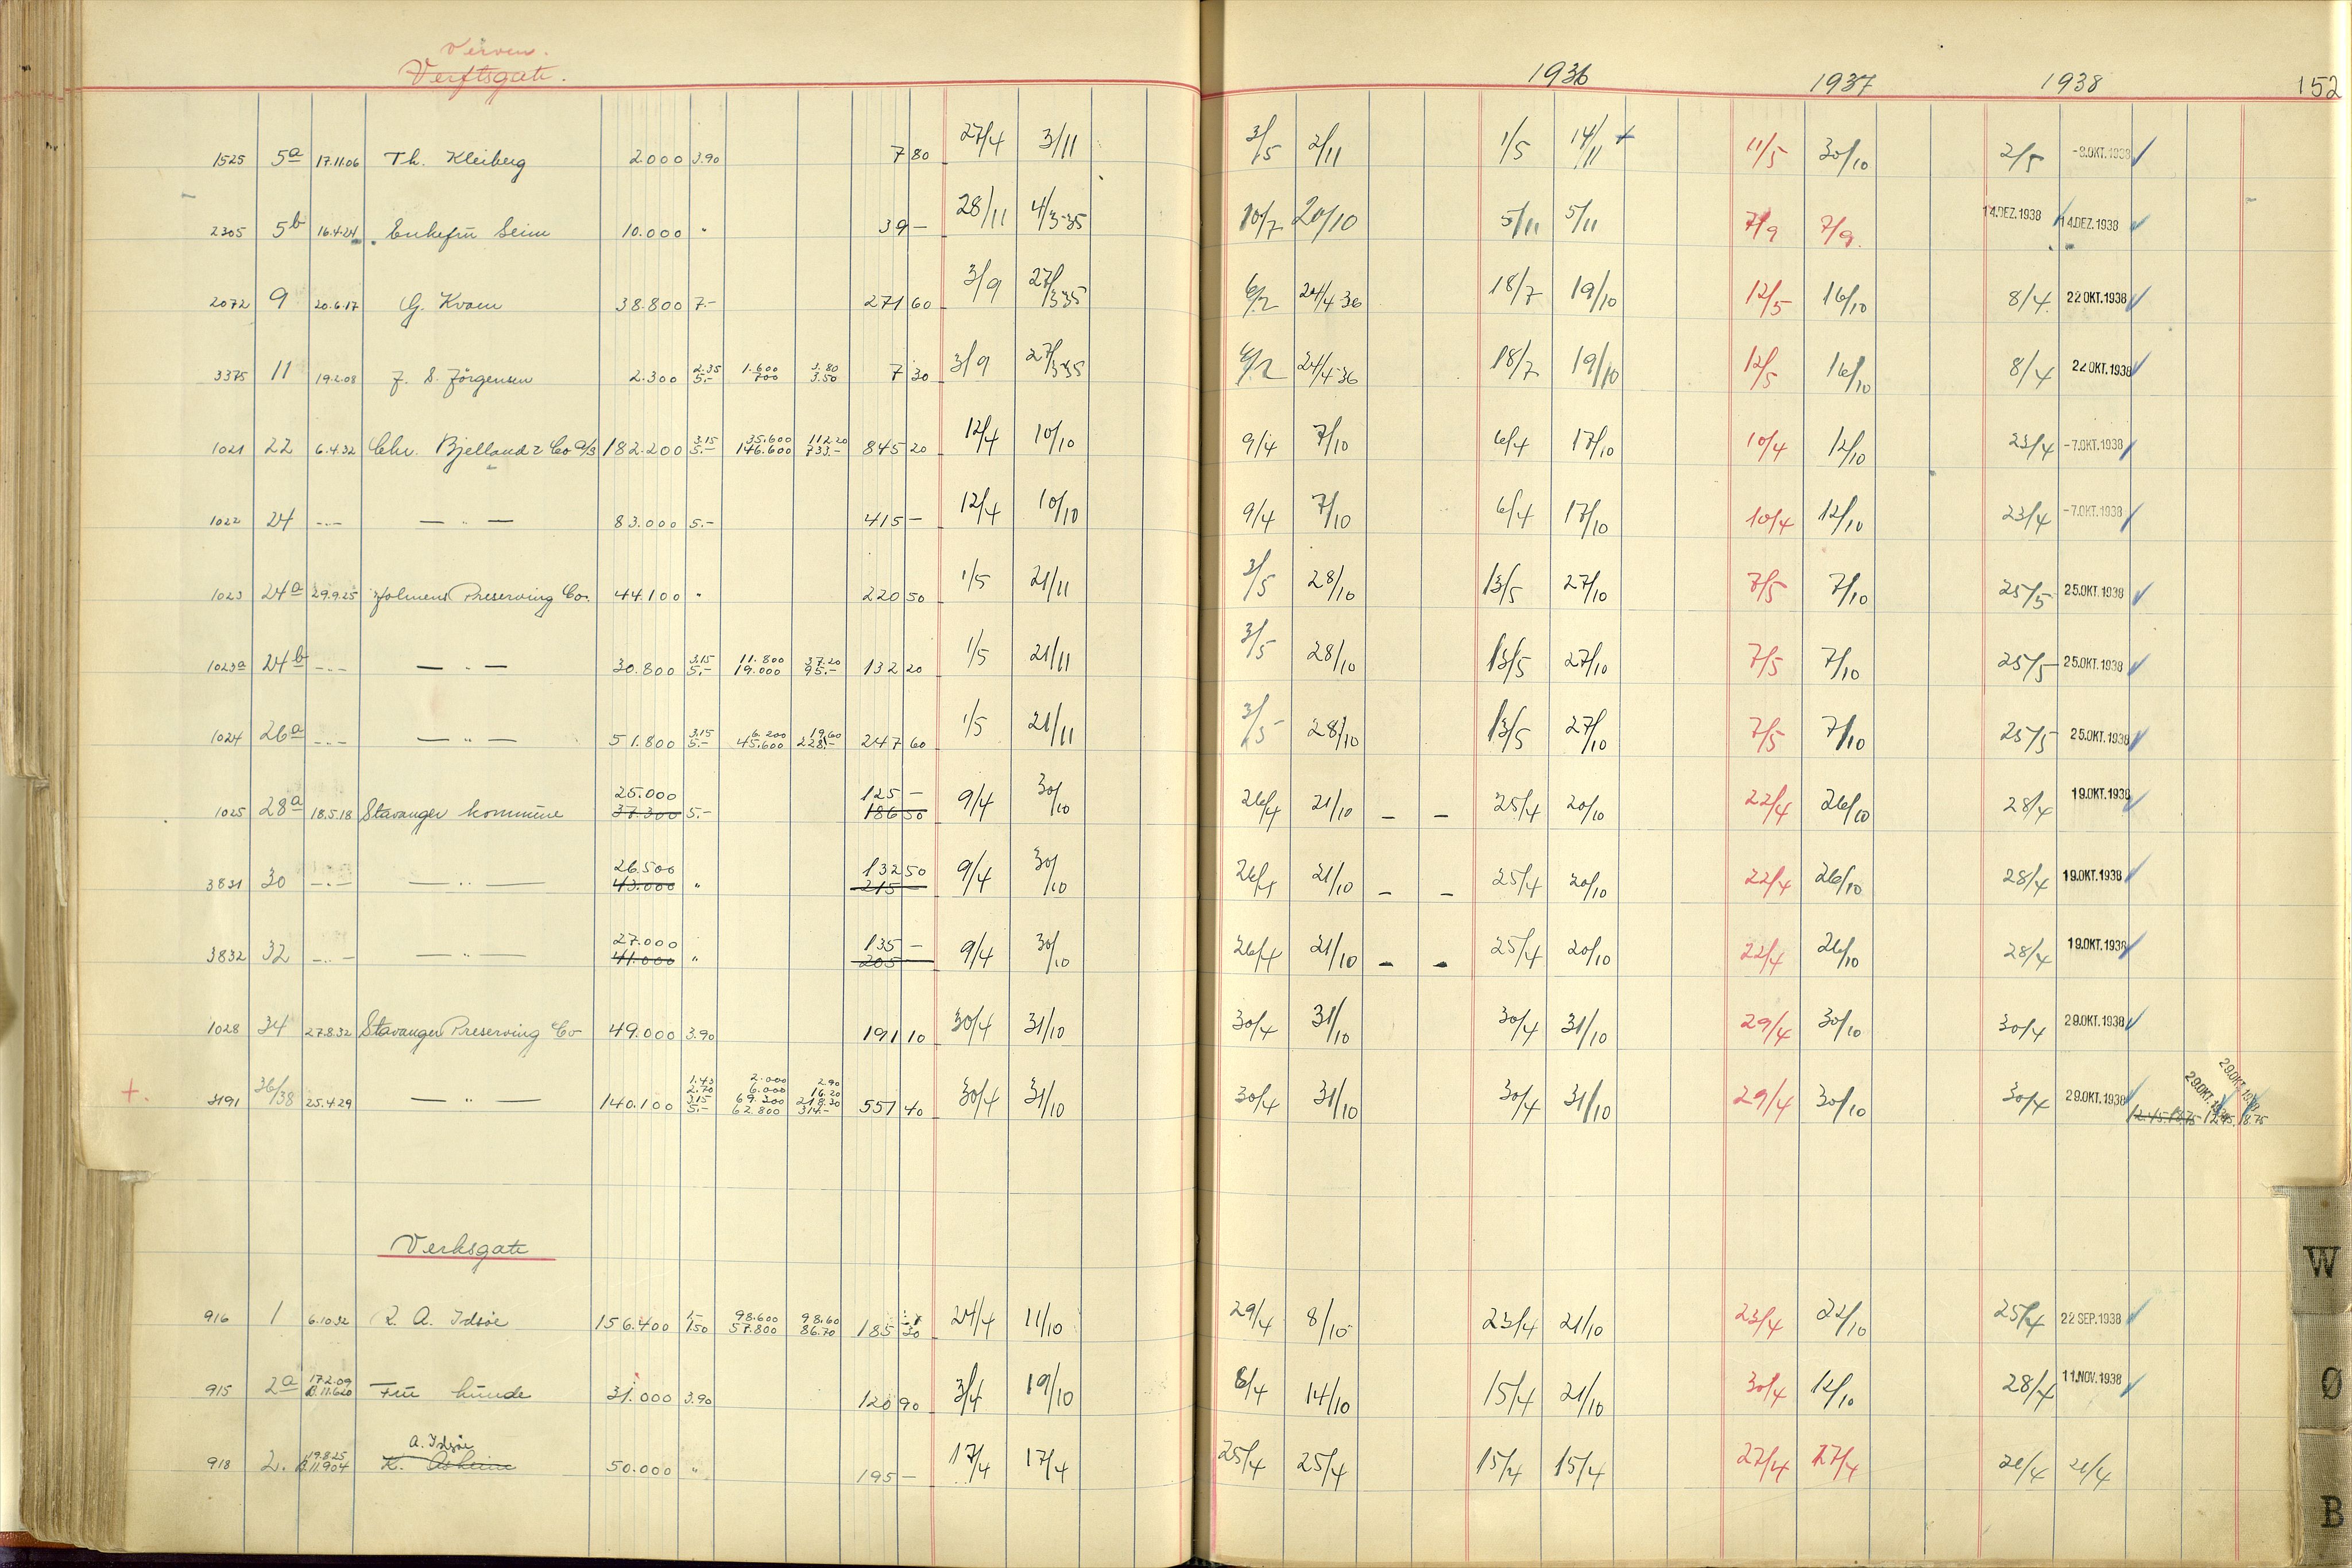 Verven.
Verftsgate.
1936 1937 1938 152
1525 5a 17.11.06 Th. Kleiberg 2.000 3.90 7 80 27/4 3/11 3/5 2/11 1/5 14/11 + 11/5 30/10 2/5 -8.OKT.1938
2305 5b 16.4.24 Enkefru Seim 10.000 " 39 — 28/11 4/3-35 10/7 20/10 5/11 5/11 7/9 7/9 14.DEZ.1938 14.DEZ.1938
2072 9 20.6.17 G. Kvam 38.800 7.- 271 60 3/9 27/3-35 6/2 24/4-36 18/7 19/10 12/5 16/10 8/4 22 OKT.1938
3375 11 19.2.08 J. S. Jörgensen 2.300 2.35 5.- 1.600 700 3.80 3.50 7 30 3/9 27/3-35 6/2 24/4-36 18/7 19/10 12/5 16/10 8/4 22 OKT.1938
1021 22 6.4.32 Chr. Bjelland & Co A/S 182.200 3.15 5.- 35.600 146.600 112.20 733.- 845 20 12/4 10/10 9/4 7/10 6/4 17/10 10/4 12/10 23/4 -7.OKT.1938
1022 24 -"- — " — 83.000 5.- 415 — 12/4 10/10 9/4 7/10 6/4 17/10 10/4 12/10 23/4 -7.OKT.1938
1023 24a 29.9.25 Holmens Preserving Co. 44.100 " 220 50 1/5 21/11 3/5 28/10 13/5 27/10 7/5 7/10 25/5 25.OKT.1938
1023a 24b -"- — " — 30.800 3.15 5.- 11.800 19.000 37.20 95.- 132 20 1/5 21/11 3/5 28/10 13/5 27/10 7/5 7/10 25/5 25.OKT.1938
1024 26a -"- — " — 51.800 3.15 5.- 6.200 45.600 19.60 228.- 247 60 1/5 21/11 3/5 28/10 13/5 27/10 7/5 7/10 25/5 25.OKT.1938
25.000 125 —
1025 28a 18.5.18 Stavanger kommune 37.300 5.- 186 50 9/4 30/10 26/4 21/10 — — 25/4 20/10 22/4 26/10 28/4 19.OKT.1938
26.500 132 50
3831 30 -"- — " — 43.000 " 215 — 9/4 30/10 26/4 21/10 — — 25/4 20/10 22/4 26/10 28/4 19.OKT.1938
27.000 135 —
3832 32 -"- — " — 41.000 " 205 — 9/4 30/10 26/4 21/10 — — 25/4 20/10 22/4 26/10 28/4 19.OKT.1938
1028 34 27.8.32 Stavanger Preserving Co 49.000 3.90 191 10 30/4 31/10 30/4 31/10 30/4 31/10 29/4 30/10 30/4 29.OKT.1938
+. 3191 36/38 25.4.29 — " — 140.100 1.45 2.70 3.15 5.- 2.000 6.000 69.300 62.800 2.90 16.20 218.30 314.- 551 40 30/4 31/10 30/4 31/10 30/4 31/10 29/4 30/10 30/4 29.OKT.1938 29.OKT.1938 29.OKT.1938 12.45 18.75 12.45 18.75
Verksgate
916 1 6.10.32 A. Idsöe 156.400 1.- 1.50 98.600 57.800 98.60 86.70 185 30 24/4 11/10 29/4 8/10 23/4 21/10 23/4 22/10 25/4 22 SEP.1938
915 2a 17.2.09 B.11.620 Fru Lunde 31.000 3.90 120 90 3/4 19/10 8/4 14/10 15/4 21/10 30/4 12/10 28/4 11.NOV.1938
A. Idsöe
918 2. 19.8.25 B.11.904 K. Asheim 50.000 " 195 — 17/4 17/4 25/4 25/4 15/4 15/4 27/4 27/4 21/4 21/4
W
Ø
B